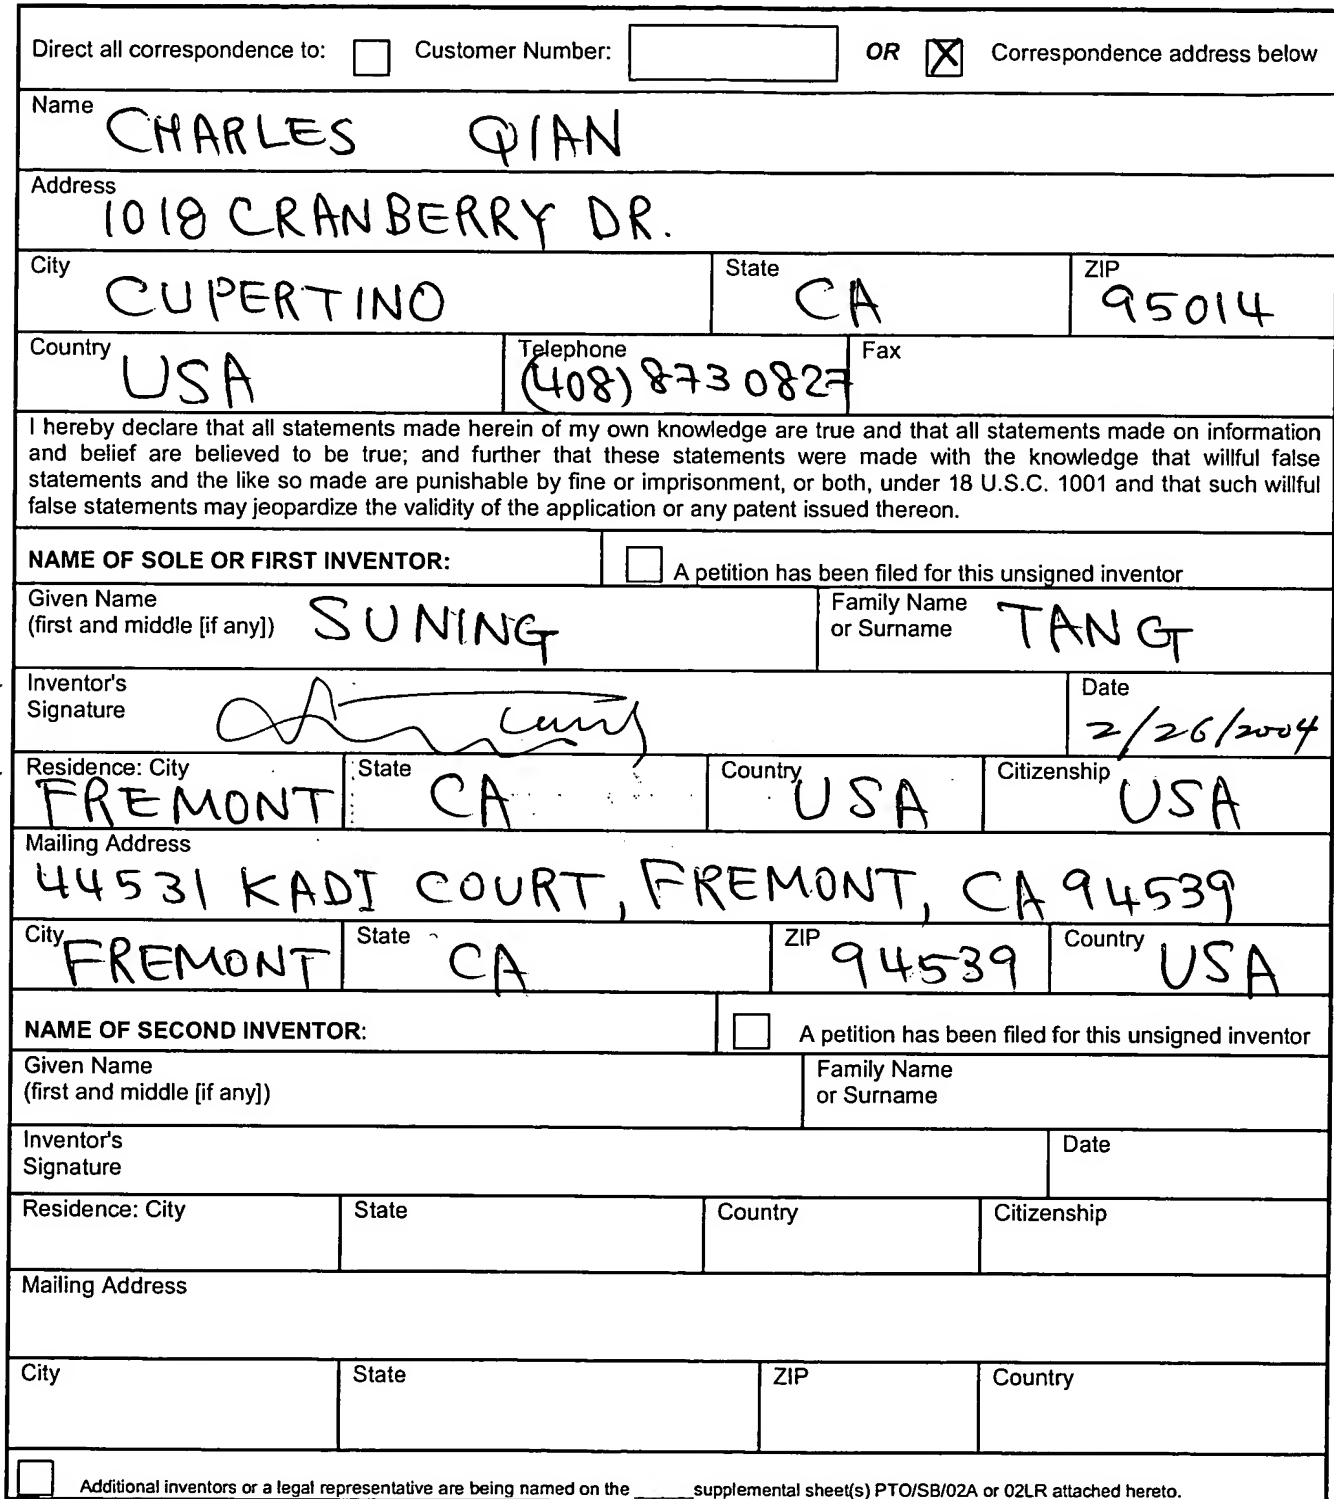 Direct all correspondence to: Customer Number: OR X Correspondence address below
Name
CHARLES QIAN
Address
1018 CRANBERRY DR.
City State ZIP
CUPERTINO CA 95014
Country Telephone Fax
USA (408) 873 0827
I hereby declare that all statements made herein of my own knowledge are true and that all statements made on information
and belief are believed to be true; and further that these statements were made with the knowledge that willful false
statements and the like so made are punishable by fine or imprisonment, or both, under 18 U.S.C. 1001 and that such willful
false statements may jeopardize the validity of the application or any patent issued thereon.
NAME OF SOLE OR FIRST INVENTOR: A petition has been filed for this unsigned inventor
Given Name Family Name
(first and middle [if any]) SUNING or Surname TANG
Inventor's Date
Signature 2/26/2004
Residence: City State Country Citizenship
FREMONT CA USA USA
Mailing Address
44531 KADI COURT, FREMONT, CA 94539
City State ZIP Country
FREMONT CA 94539 USA
NAME OF SECOND INVENTOR: A petition has been filed for this unsigned inventor
Given Name Family Name
(first and middle [if any]) or Surname
Inventor's Date
Signature
Residence: City State Country Citizenship
Mailing Address
City State ZIP Country
Additional inventors or a legal representative are being named on the _____ supplemental sheet(s) PTO/SB/02A or 02LR attached hereto.